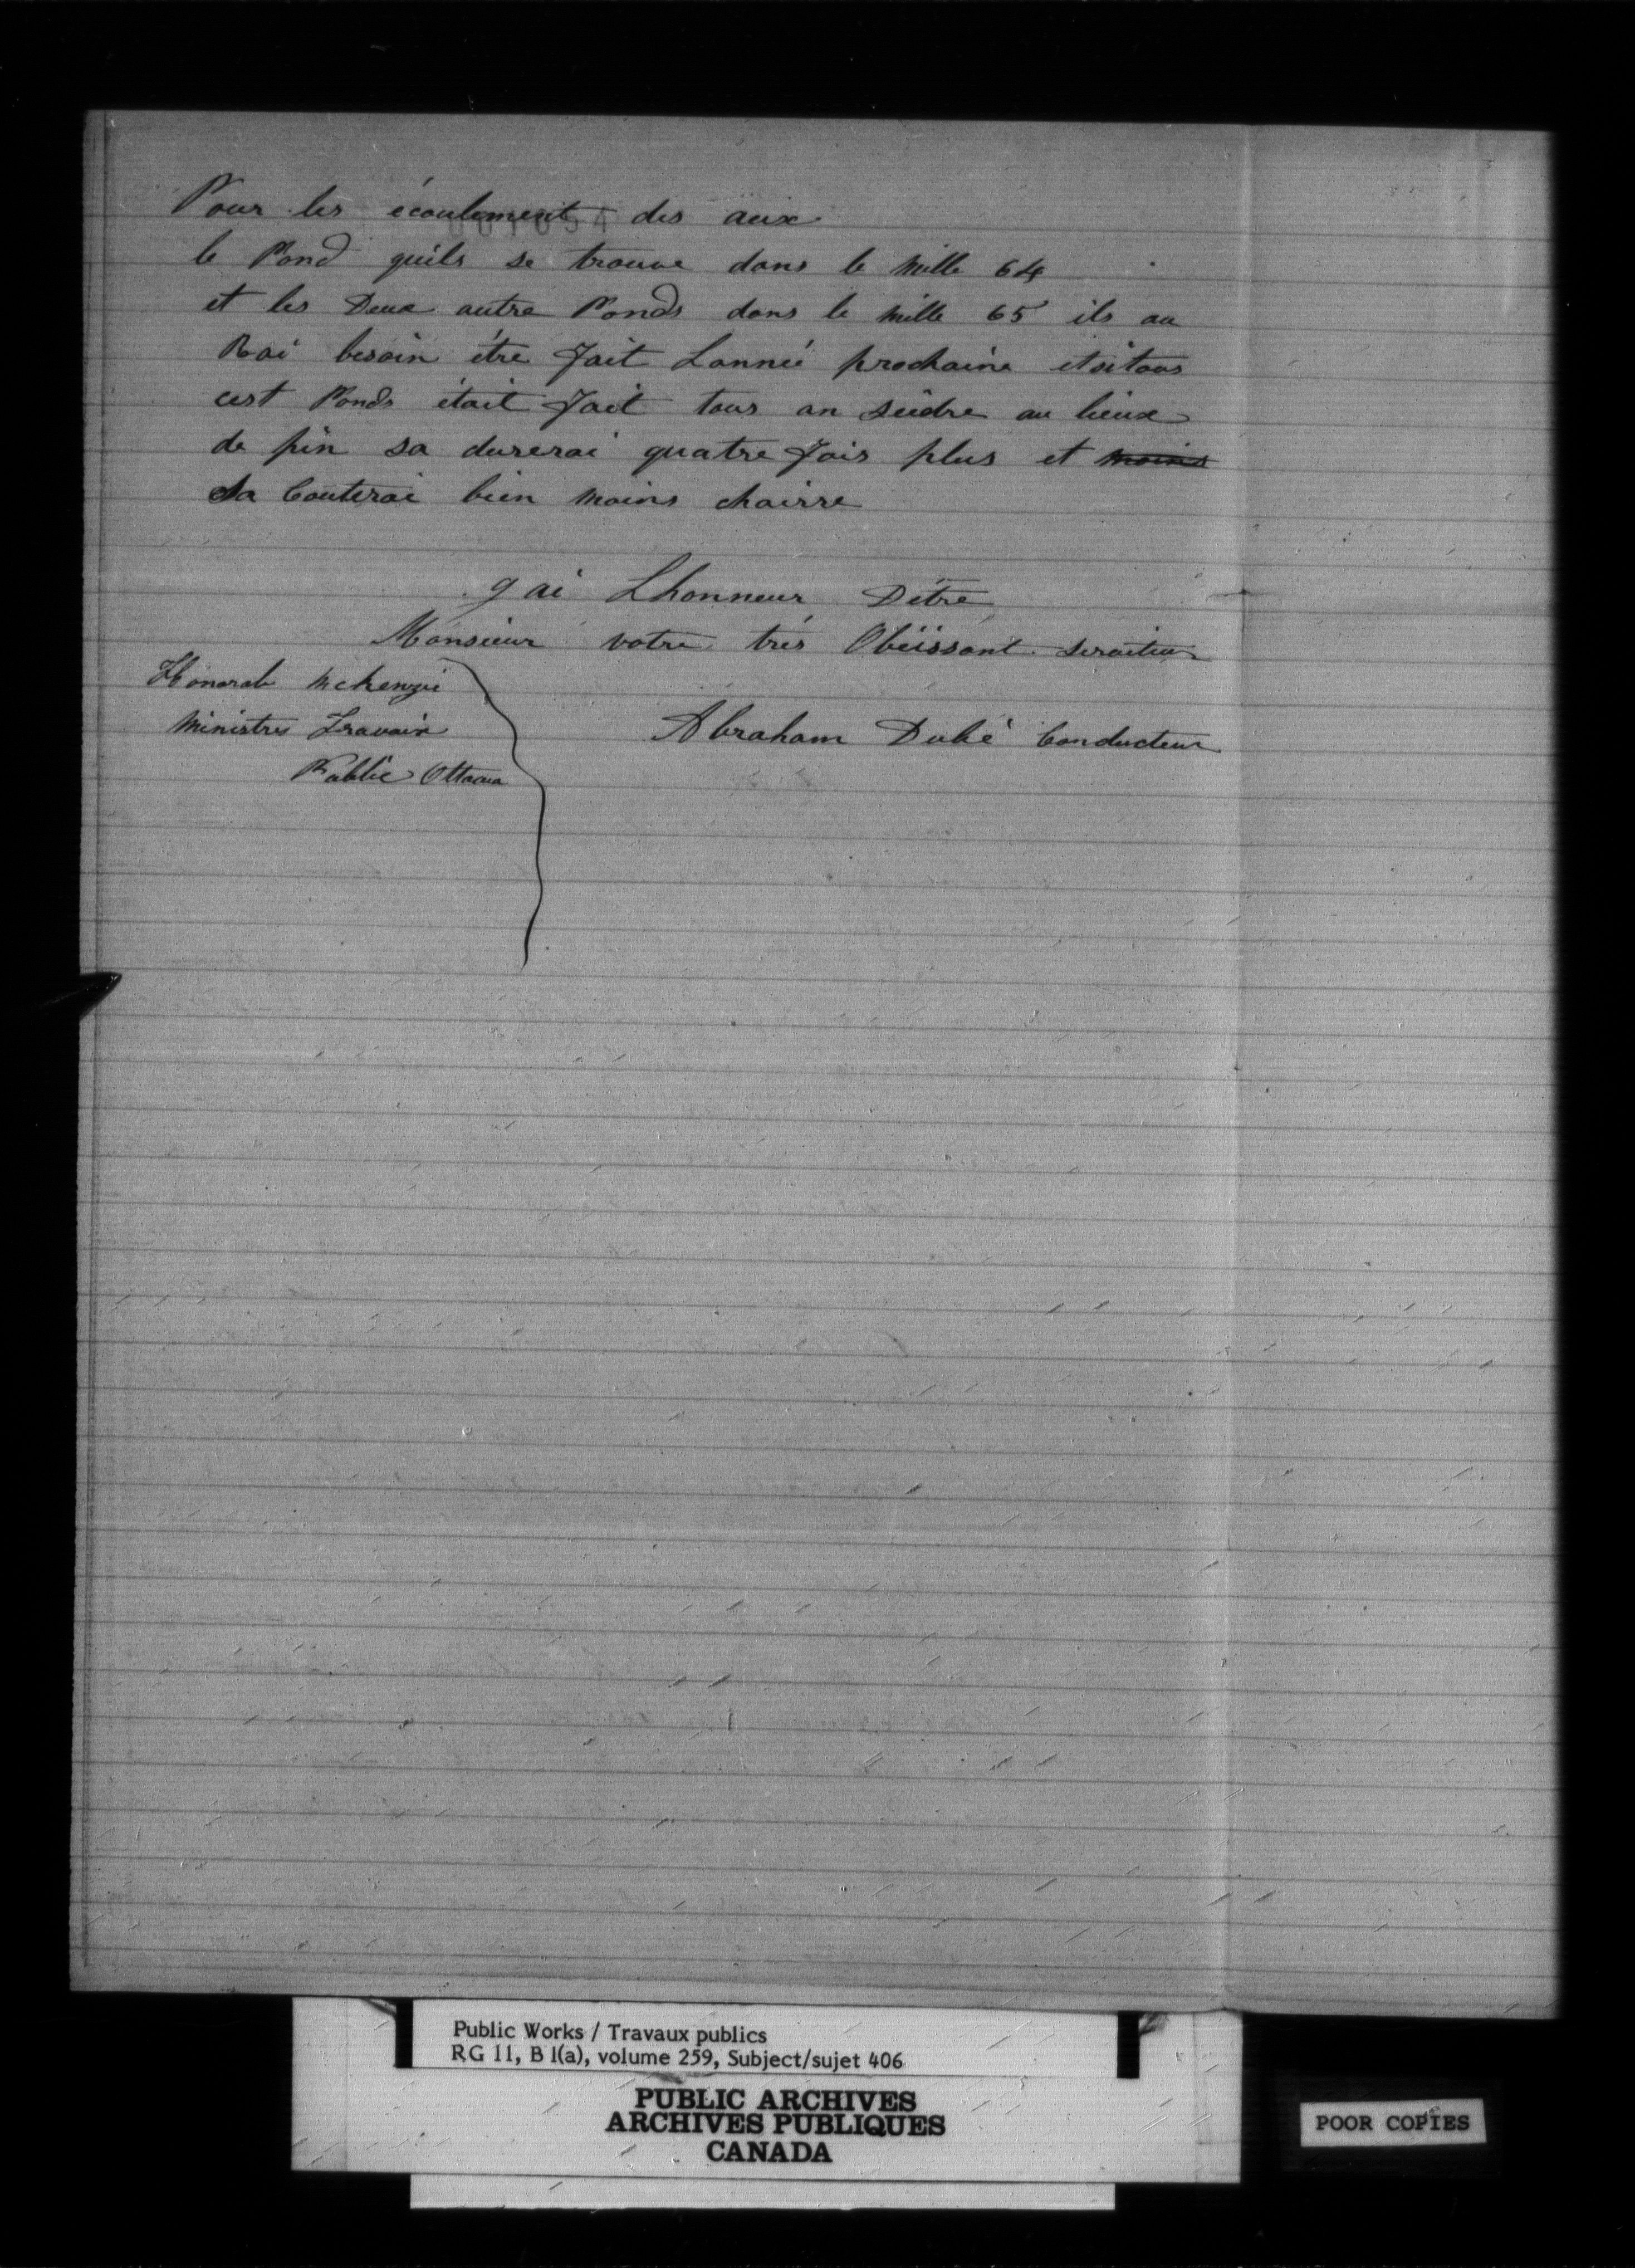 Pour les écoulement des aux
le Pond quils se trouve dans le mille 64
et les Deux autre Ponds dans le mille 65 ils au
Rai besoin être fait Lannéé prochaine et si tous
cest Ponds était fait tous an seidre au lieux
de pin sa durerai quatre fois plus et moins
Sa Couterai bien moins chairre
g ai Lhonneur Dêtre
Monsieur votre très Obéissant serviteur
Honorab McKenzie
Ministres Travaix
Public Ottawa
Abraham Dubé Conducteur
Public Works / Travaux publics
RG 11, B 1(a), volume 259, Subject/sujet 406
PUBLIC ARCHIVES
ARCHIVES PUBLIQUES
CANADA
POOR COPIES